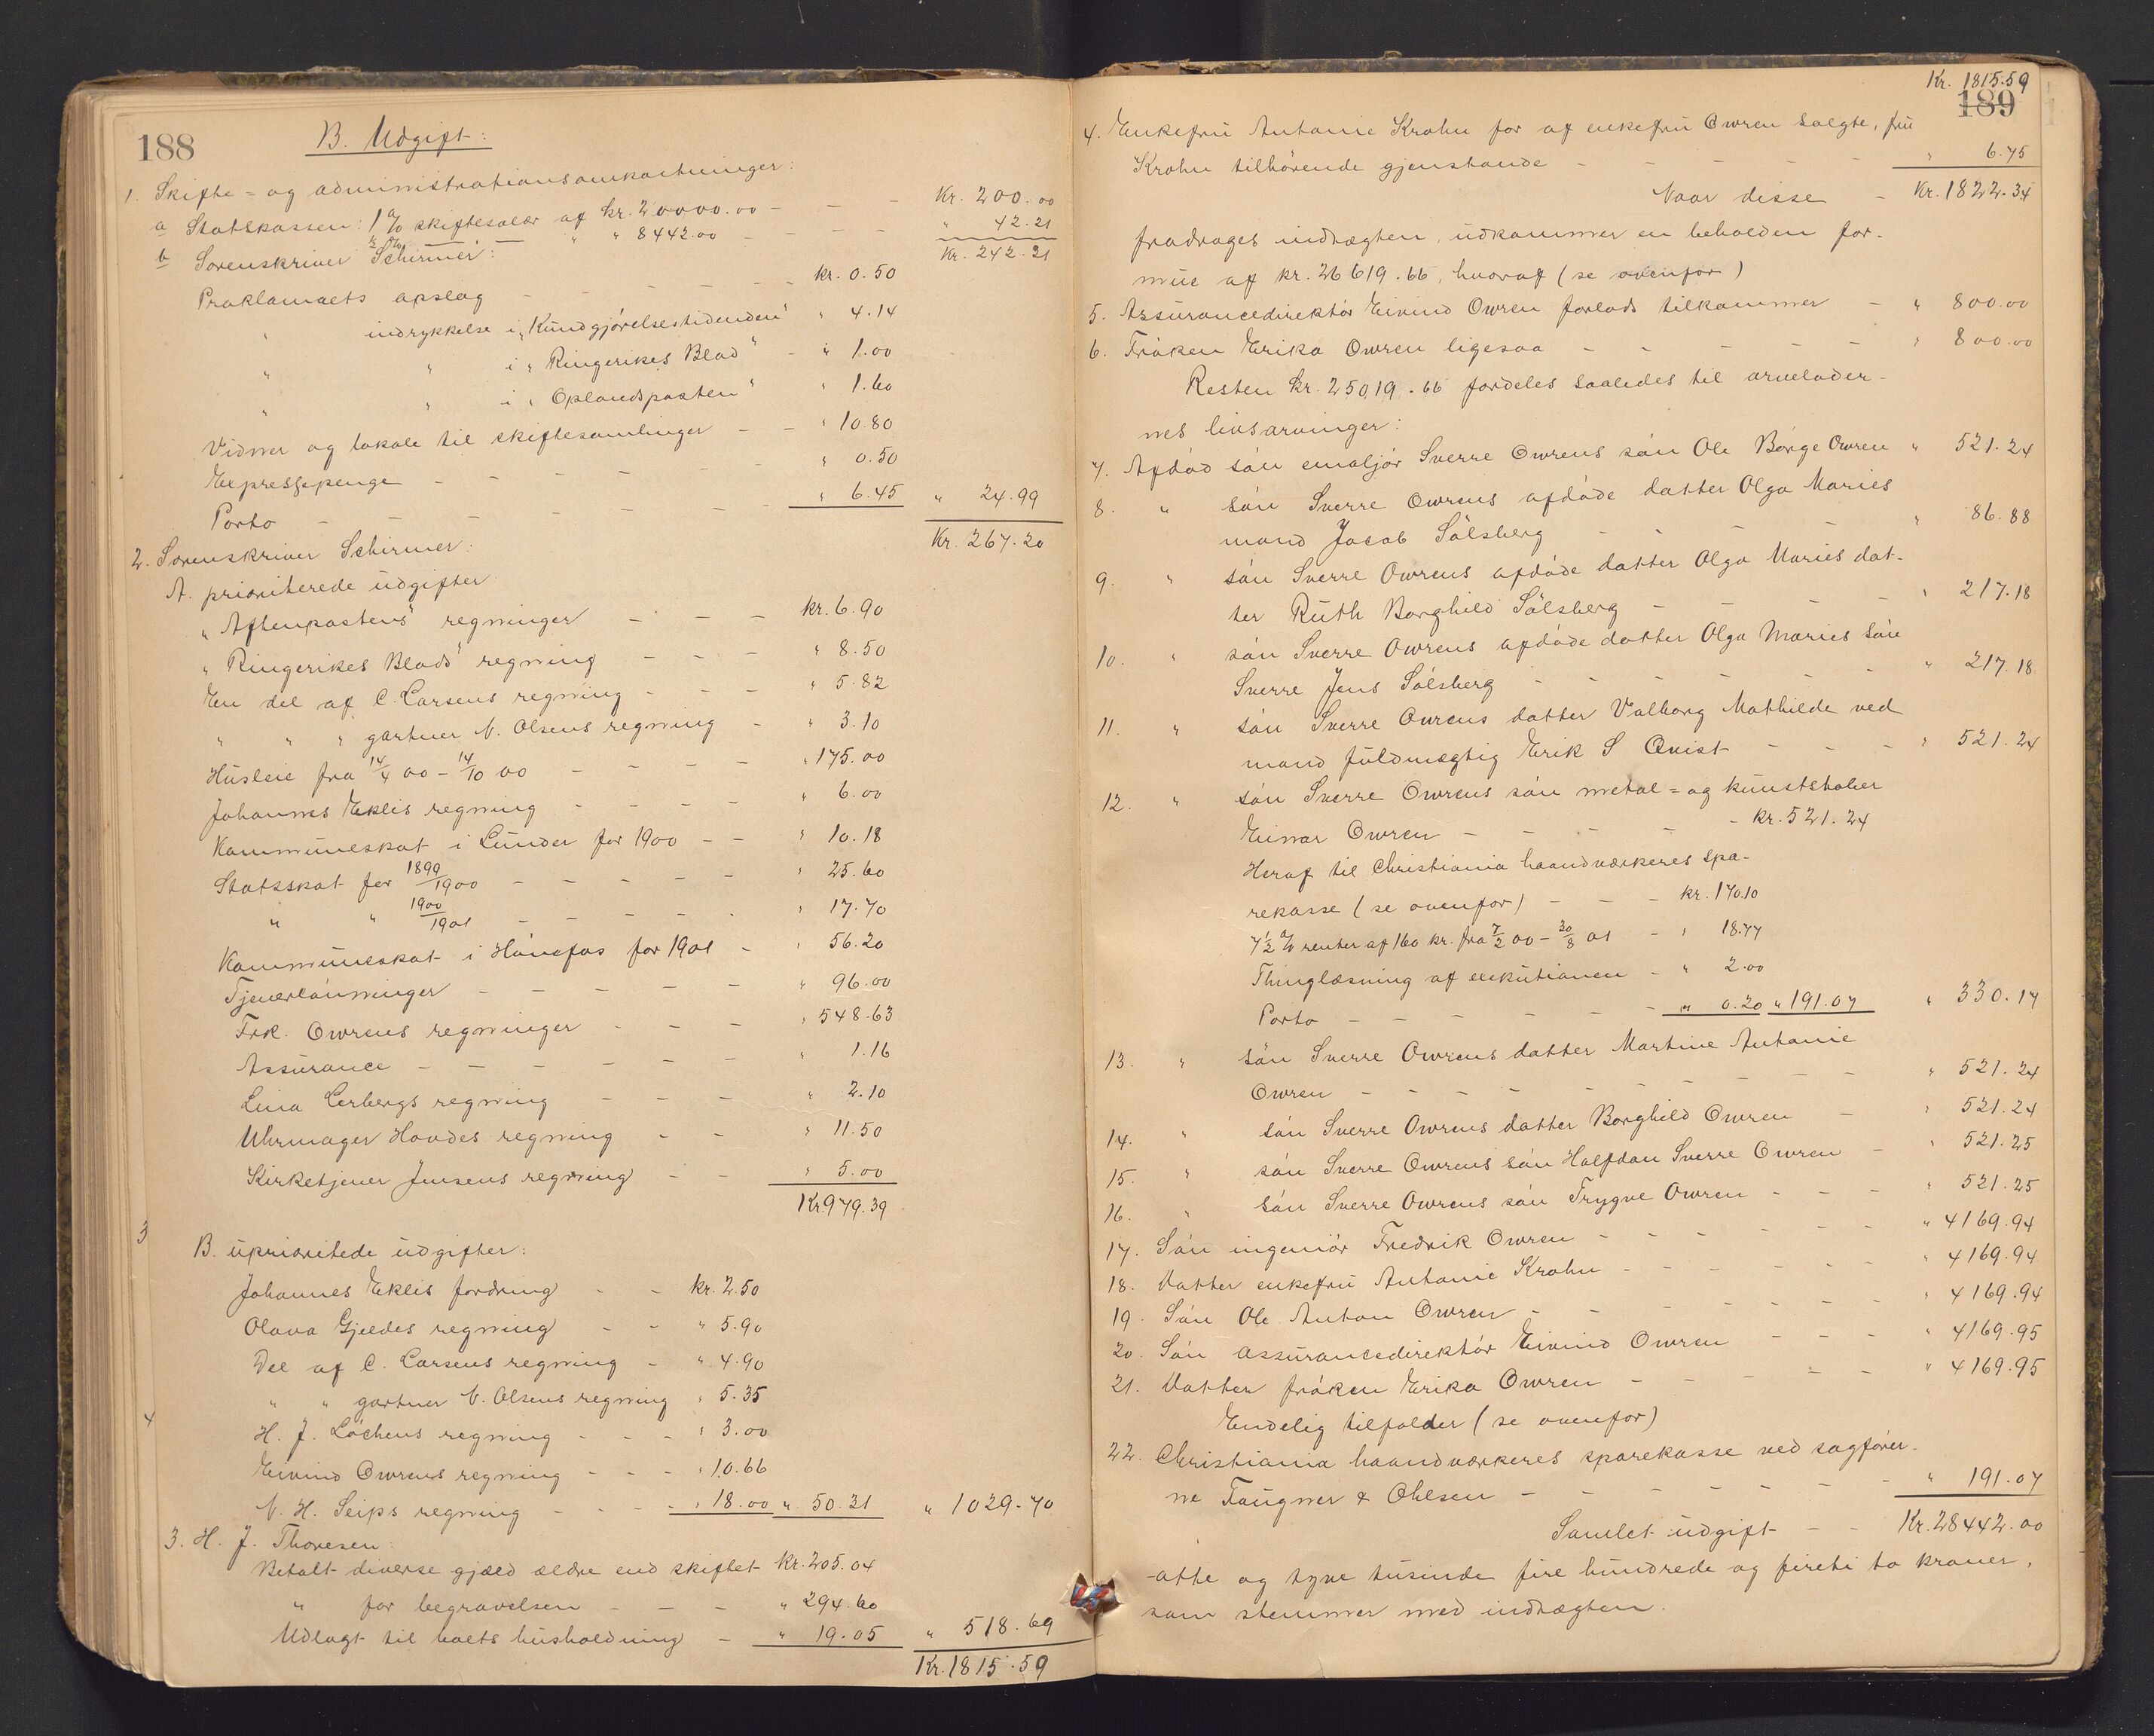 188
B. Udgift:
1. Skifte= og administrationsomkostninger:
a Statskassen: 1 % skiftesalær af kr. 20000.00 - - - Kr. 200.00
½ % — — " " 8442.00 - - - - " 42.21
Kr. 242.21
b Sorenskriver Schirmer:
Proklamaets opslag - - - - - - kr. 0.50
" indrykkelse i „Kundgjørelsestidenden" " 4.14
" " i „Ringerikes Blad" - " 1.00
" " i „Oplandsposten" " 1.60
Vidner og lokale til skiftesamlinger - - " 10.80
Expressepenge - - - - - - " 0.50
Porto - - - - - - - " 6.45 " 24.99
Kr. 267.20
2. Sorenskriver Schirmer:
A. prioriterede udgifter
„Aftenpostens" regninger - - - kr. 6.90
„Ringerikes Blads" regning - - - " 8.50
En del af C. Larsens regning - - - " 5.82
" " " gartner N. Olsens regning - " 3.10
Husleie fra 14/4 00 - 14/10 00 - - - - " 175.00
Johannes Eklis regning - - - - " 6.00
Kommuneskat i Lunder for 1900 - - " 10.18
Statsskat for 1899/1900 - - - - - " 25.60
" " 1900/1901 - - - - - " 17.70
Kommuneskat i Hønefos for 1901 - " 56.20
Tjenerlønninger - - - - - " 96.00
Frk. Owrens regninger - - - " 548.63
Assurance - - - - - - " 1.16
Lina Lerbergs regning - - - " 2.10
Uhrmager Hovdes regning - - " 11.50
Kirketjener Jensens regning - - " 5.00
Kr. 979.39
3
B. uprioritede udgifter:
Johannes Eklis fordring - - kr. 2.50
Olava Gjeldes regning - - " 5.90
Del af C. Larsens regning - " 4.90
" " gartner N. Olsens regning " 5.35
4
H. J. Løchens regning - - - " 3.00
Eivind Owrens regning - - - " 10.66
N. H. Seips regning - - - - " 18.00 " 50.31 " 1029.70
3. H. J. Thoresen:
Betalt diverse gjæld ældre end skiftet Kr. 205.04
" for begravelsen - - - " 294.60
Udlagt til boets husholdning - " 19.05 " 518.69
Kr. 1815.59
Kr. 1815.59
189
4. Enkefru Antonie Krohn for af enkefru Owren solgte, fru
Krohn tilhørende gjenstande - - - - - " 6.75
Naar disse - Kr. 1822.34
fradrages indtægten, udkommer en beholden for-
mue af kr. 26619.66, hvoraf (se ovenfor)
5. Assurancedirektør Eivind Owren forlods tilkommer - " 800.00
6. Frøken Erika Owren ligesaa - - - - - " 800.00
Resten kr. 25019.66 fordeles saaledes til arvelader-
nes livsarvinger:
7. Afdød søn emaljør Sverre Owrens søn Ole Børge Owren " 521.24
8. " søn Sverre Owrens afdøde datter Olga Maries
mand Jacob Sölsberg - - - - " 86.88
9. " søn Sverre Owrens afdøde datter Olga Maries dat-
ter Ruth Borghild Sölsberg - - - - " 217.18
10. " søn Sverre Owrens afdøde datter Olga Maries søn
Sverre Jens Sölsberg - - - - - - " 217.18
11. " søn Sverre Owrens datter Valborg Mathilde ved
mand fuldmægtig Erik S Qvist - - - " 521.24
12. " søn Sverre Owrens søn metal= og kunststøber
Einar Owren - - - - - kr. 521.24
Heraf til Christiania haandværkeres spa-
rekasse (se ovenfor) - - - kr. 170.10
7½ % renter af 160 kr. fra 7/2 00 - 30/8 01 - " 18.77
Thinglæsning af exekutionen - " 2.00
Porto - - - - - - - " 0.20 " 191.07 " 330.17
13. " søn Sverre Owrens datter Martine Antonie
Owren - - - - - - - - - " 521.24
14. " søn Sverre Owrens datter Borghild Owren - " 521.24
15. " søn Sverre Owrens søn Halfdan Sverre Owren - " 521.25
16. " søn Sverre Owrens søn Trygve Owren - - - " 521.25
17. Søn ingeniør Fredrik Owren - - - - - - " 4169.94
18. Datter enkefru Antonie Krohn - - - - - - " 4169.94
19. Søn Ole Anton Owren - - - - - - - " 4169.94
20. Søn assurancedirektør Eivind Owren - - - " 4169.95
21. Datter frøken Erika Owren - - - - - " 4169.95
Endelig tilfalder (se ovenfor)
22. Christiania haandværkeres sparekasse ved sagfører-
ne Faugner & Ohlsen - - - - - - - " 191.07
Samlet udgift - - Kr. 28442.00
-otte og tyve tusinde fire hundrede og fireti to kroner,
som stemmer med indtægten.